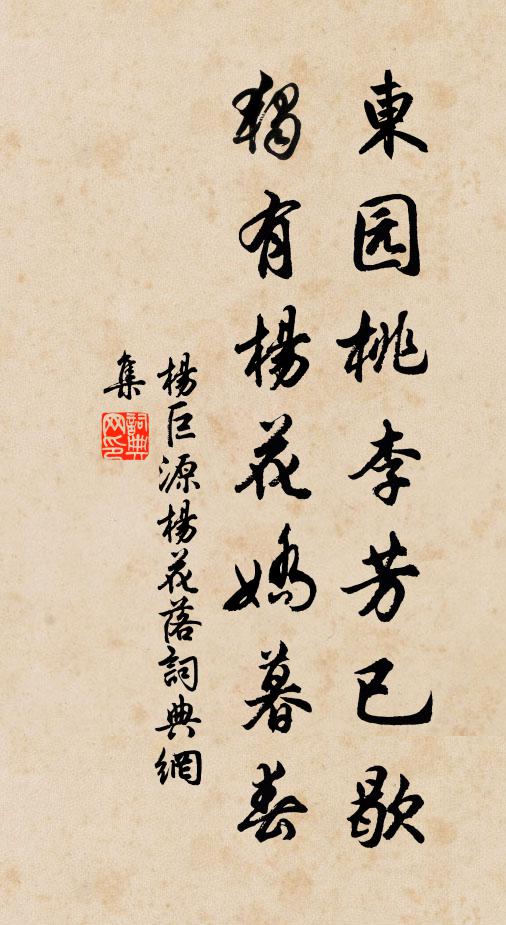 東园桃李芳已歇
獨有楊花嬌暮春
楊巨源楊花落詞典網
集
詞典
网印